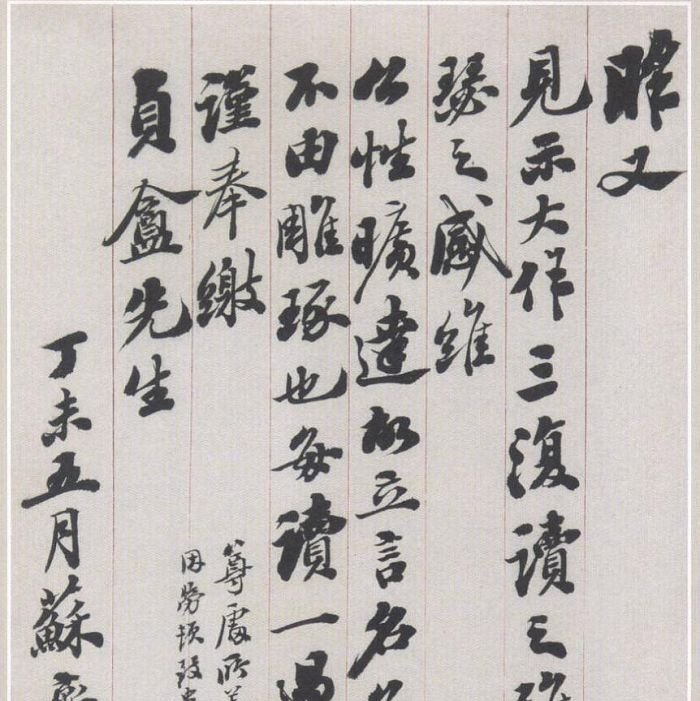 昨又
見示大作三復讀之
瑟之感維
公性曠達故立言名
不由雕琢也每讀一過
謹奉繳
尊處所
員盦先生
丁未五月蘇